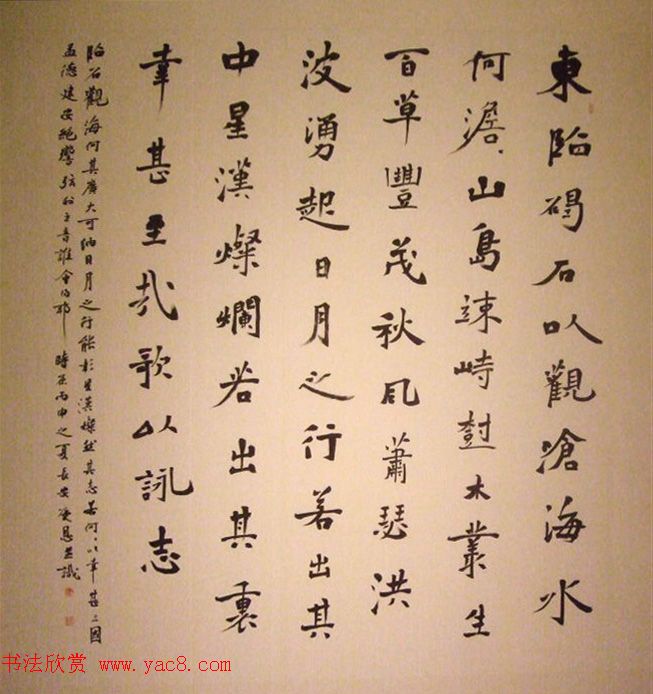 東臨碣石以觀滄海水
何澹〻山島竦峙樹木叢生
百草豐茂秋風蕭瑟洪
波湧起日月之行若出其
中星漢燦爛若出其裏
幸甚至哉歌以詠志
臨石觀海何其廣大可納日月之行能彰星漢燦然其志若何〻以幸甚三國
孟德建安絕響弦外之音誰會 耶 時在丙申之夏長安 並識
书法欣赏 www.yac8.com